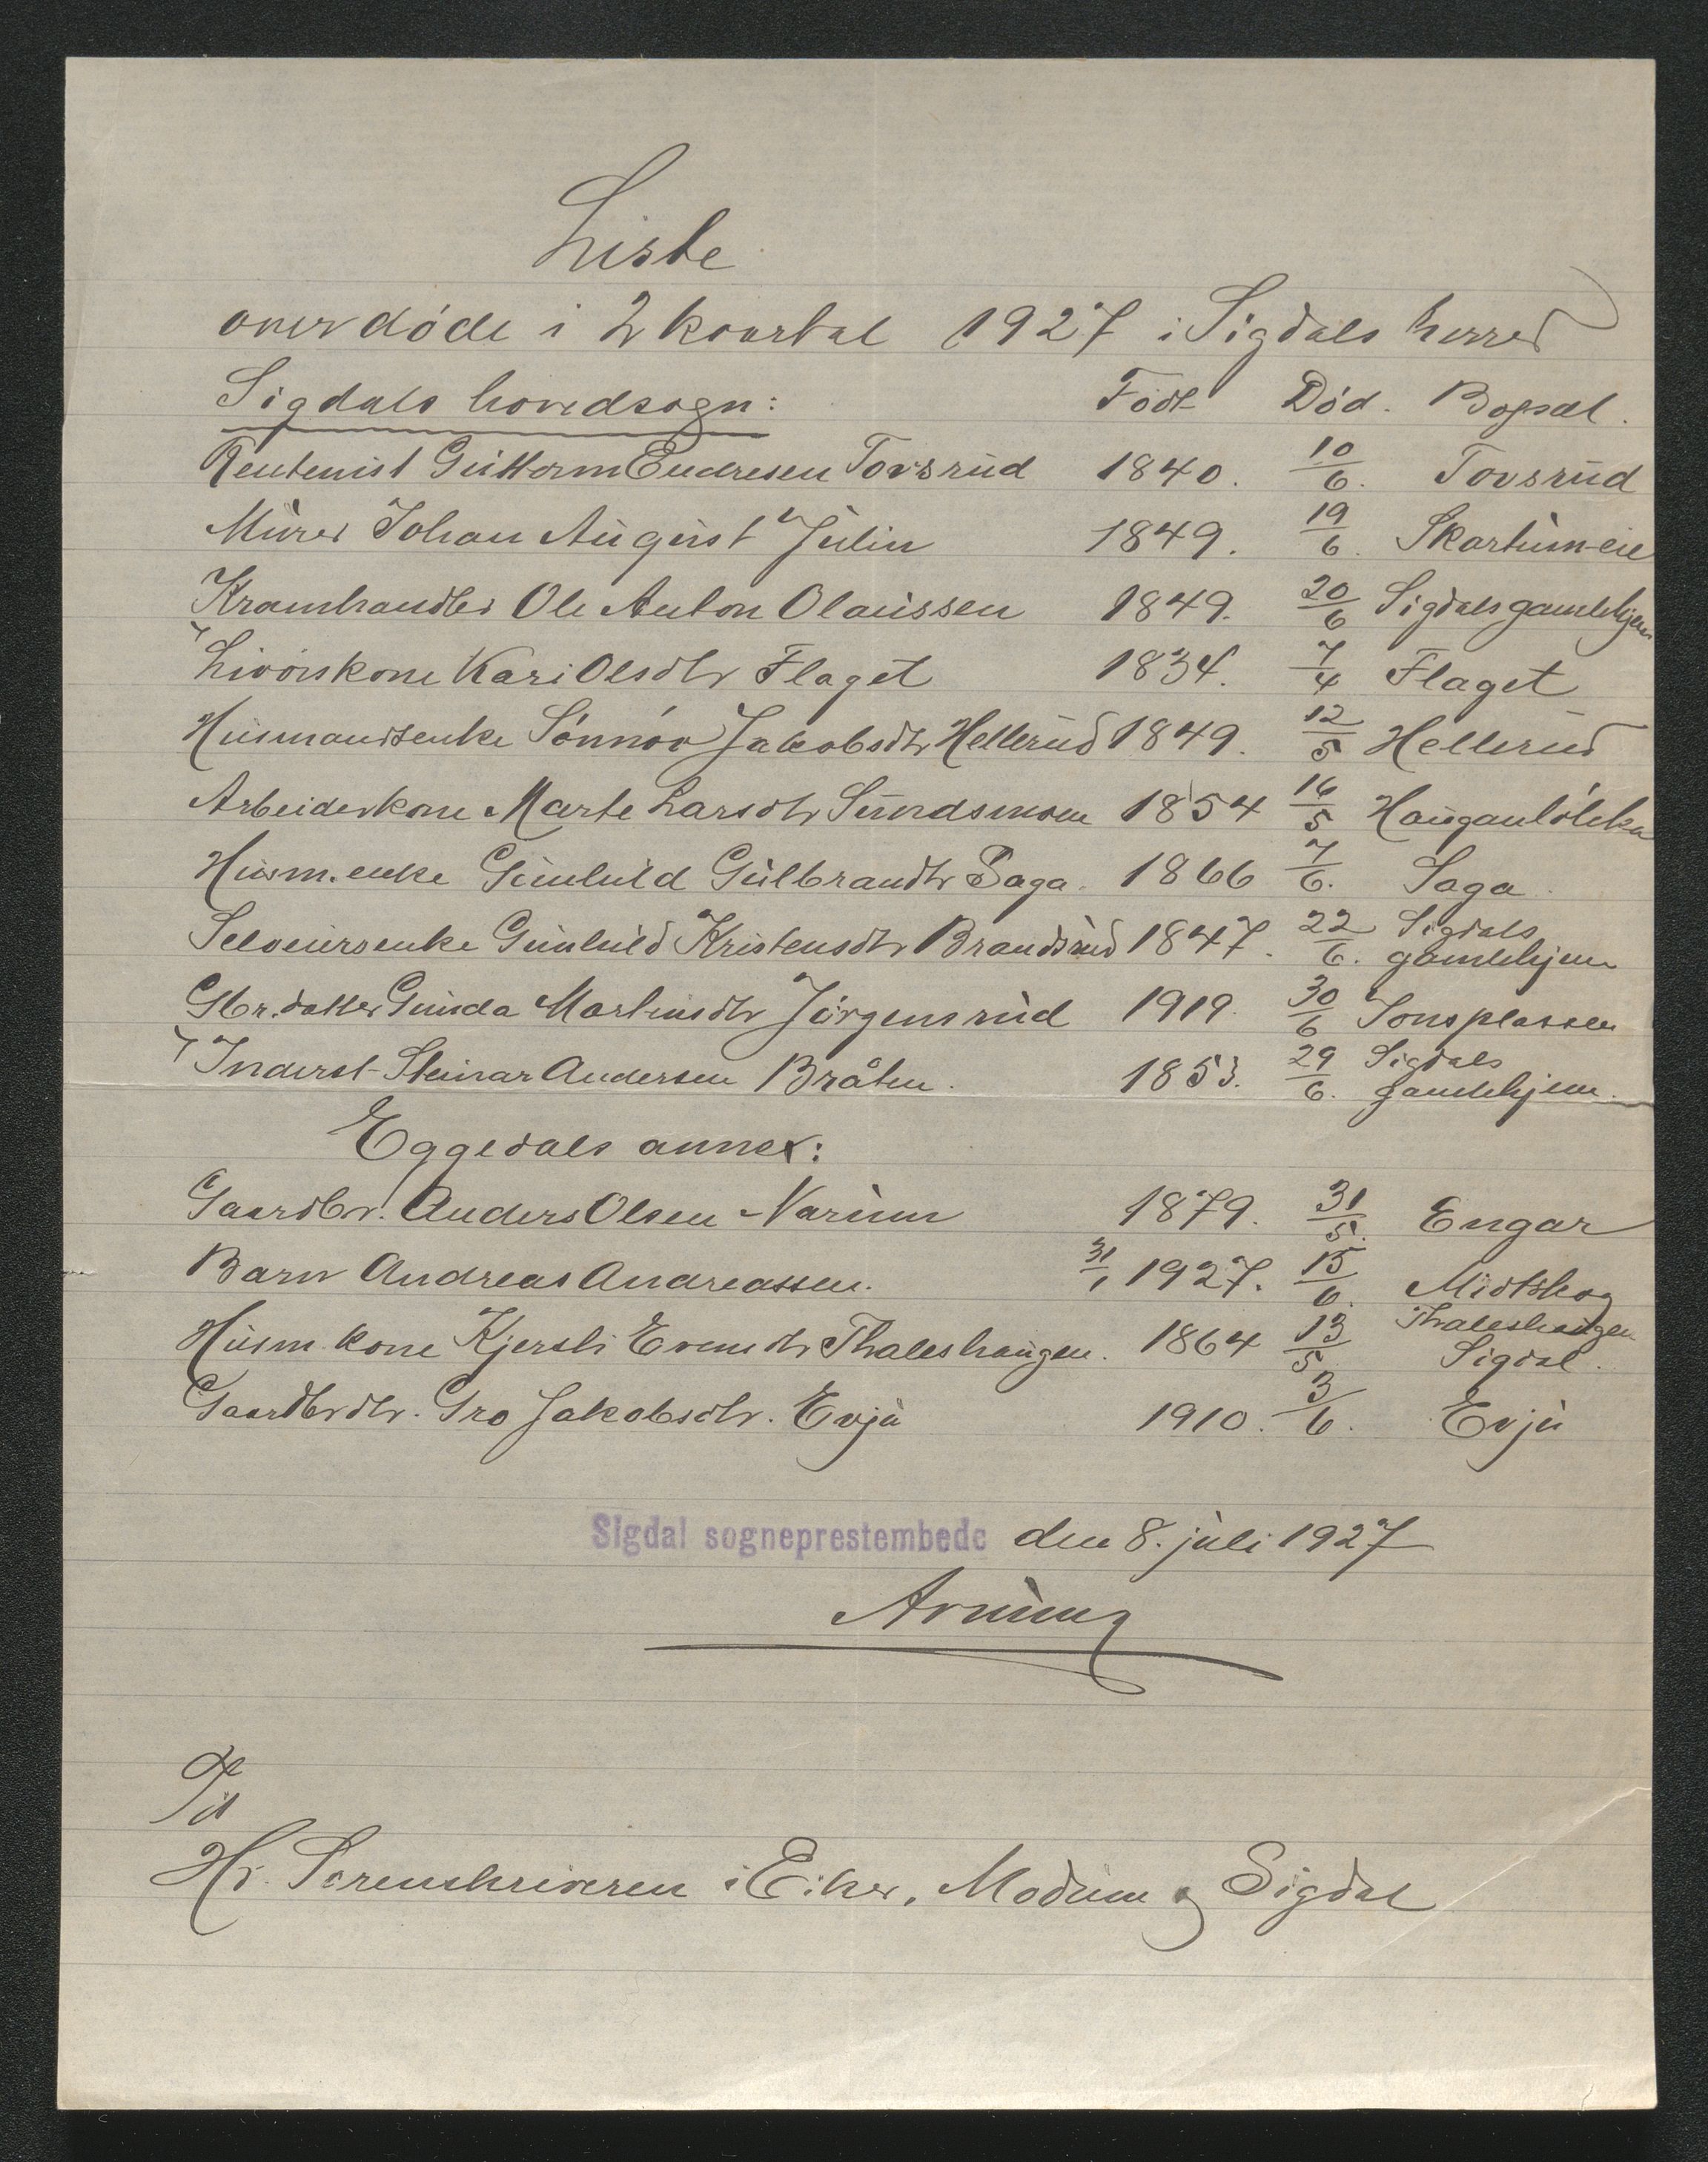 Liste
over døde i 2 kvartal 1927 i Sigdals herred
Sigdals hovedsogn: Født Død. Bopæl.
Rentenist Guttorm Endresen Tovsrud 1840. 10/6. Tovsrud
Murer Johan August Julin 1849. 19/6. Skartum-eie
Kramhandler Ole Anton Olaussen 1849. 20/6 Sigdals gamlehjem
Livørskone Kari Olsdtr Flaget 1834. 7/4 Flaget
Husmandsenke Sønnøv Jakobsdtr Hellerud 1849. 12/5 Hellerud
Arbeiderkone Marte Larsdtr Sundsmoen 1854 16/5 Hauganløkka
Husm.enke Gunhild Gulbrandtr Saga. 1866 7/6. Saga.
Selveiersenke Gunhild Kristensdtr Brandsrud 1847. 22/6. Sigdals
gamlehjem
Gbr.datter Gunda Martinsdtr Jørgensrud 1919. 30/6 Jonsplassen
Inderst Steinar Andersen Bråten. 1853. 29/6. Sigdals
gamlehjem.
Eggedals annex:
Gaardbr. Anders Olsen Narum 1879. 31/5. Engar
Barn Andreas Andreassen. 31/1 1927. 15/6. Midtskog
Husm.kone Kjersti Evensdtr Thaleshaugen. 1864 13/5. Thaleshaugen
Sigdal.
Gaardbrdtr. Gro Jakobsdtr. Evju 1910. 3/6. Evju
Sigdal sogneprestembede den 8. juli 1927
Til
Hr. Sorenskriveren i Eiker, Modum og Sigdal